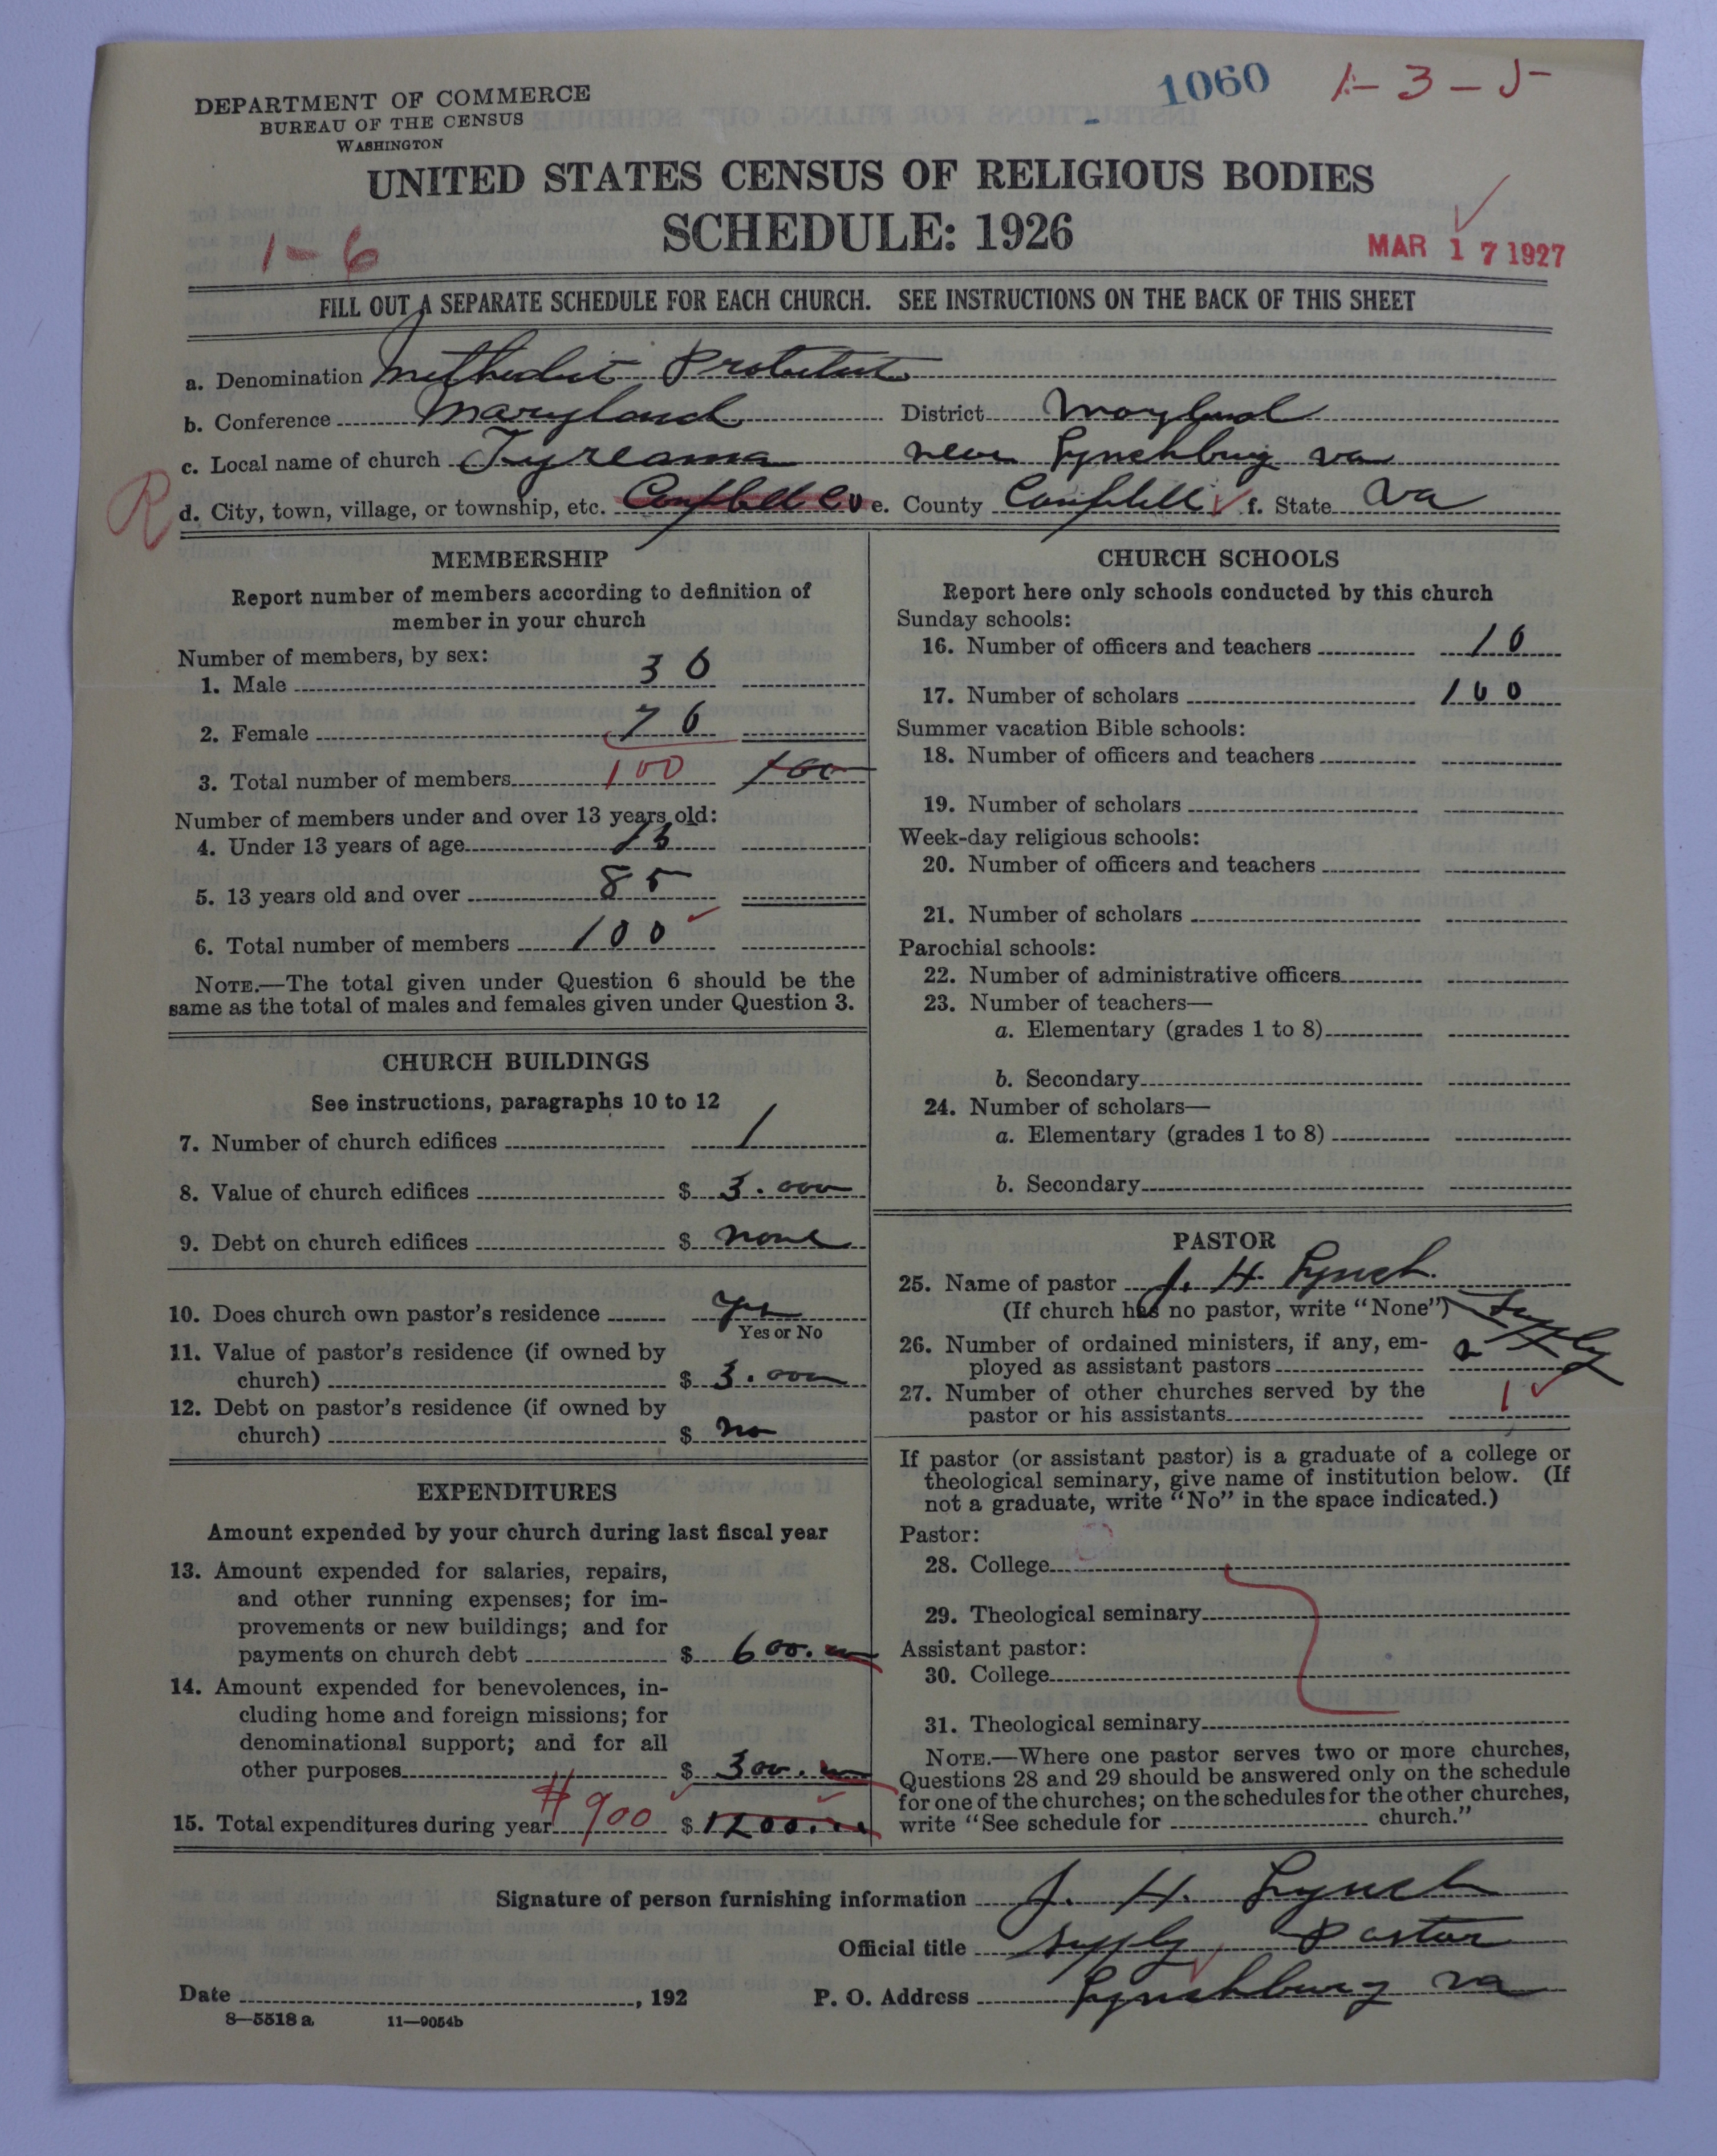 1060 1-3-5
DEPARTMENT OF COMMERCE
BUREAU OF THE CENSUS
WASHINGTON
UNITED STATES CENSUS OF RELIGIOUS BODIES
SCHEDULE: 1926
1-6
MAR 17 1927
FILL OUT A SEPARATE SCHEDULE FOR EACH CHURCH. SEE INSTRUCTIONS ON THE BACK OF THIS SHEET
a. Denomination Methodist Protestant
b. Conference Maryland District Maryland
c. Local name of church Tyreanna near Lynchburg va
R d. City, town, village, or township, etc. Campbell Co e. County Campbell f. State Va
MEMBERSHIP
Report number of members according to definition of
member in your church
Number of members, by sex:
1. Male 30
2. Female 70
3. Total number of members 100 100
Number of members under and over 13 years old:
4. Under 13 years of age 15
5. 13 years old and over 85
6. Total number of members 100
NOTE.—The total given under Question 6 should be the
same as the total of males and females given under Question 3.
CHURCH BUILDINGS
See instructions, paragraphs 10 to 12
7. Number of church edifices 1
8. Value of church edifices $ 3.000
9. Debt on church edifices $ none
10. Does church own pastor's residence yes
Yes or No
11. Value of pastor's residence (if owned by
church) $ 3.000
12. Debt on pastor's residence (if owned by
church) $ no
EXPENDITURES
Amount expended by your church during last fiscal year
13. Amount expended for salaries, repairs,
and other running expenses; for im-
provements or new buildings; and for
payments on church debt $ 600.00
14. Amount expended for benevolences, in-
cluding home and foreign missions; for
denominational support; and for all
other purposes $ 300.00
15. Total expenditures during year #900 $ 1200.00
CHURCH SCHOOLS
Report here only schools conducted by this church
Sunday schools:
16. Number of officers and teachers 10
17. Number of scholars 100
Summer vacation Bible schools:
18. Number of officers and teachers
19. Number of scholars
Week-day religious schools:
20. Number of officers and teachers
21. Number of scholars
Parochial schools:
22. Number of administrative officers
23. Number of teachers—
a. Elementary (grades 1 to 8)
b. Secondary
24. Number of scholars—
a. Elementary (grades 1 to 8)
b. Secondary
PASTOR
25. Name of pastor J. H. Lynch
(If church has no pastor, write "None") Supply
26. Number of ordained ministers, if any, em-
ployed as assistant pastors
27. Number of other churches served by the
pastor or his assistants 1
If pastor (or assistant pastor) is a graduate of a college or
theological seminary, give name of institution below. (If
not a graduate, write "No" in the space indicated.)
Pastor:
28. College
29. Theological seminary
Assistant pastor:
30. College
31. Theological seminary
NOTE.—Where one pastor serves two or more churches,
Questions 28 and 29 should be answered only on the schedule
for one of the churches; on the schedules for the other churches,
write "See schedule for church."
Signature of person furnishing information J. H. Lynch
Official title supply Pastor
Date , 192 P. O. Address Lynchburg va
8—5518 a 11—9054b